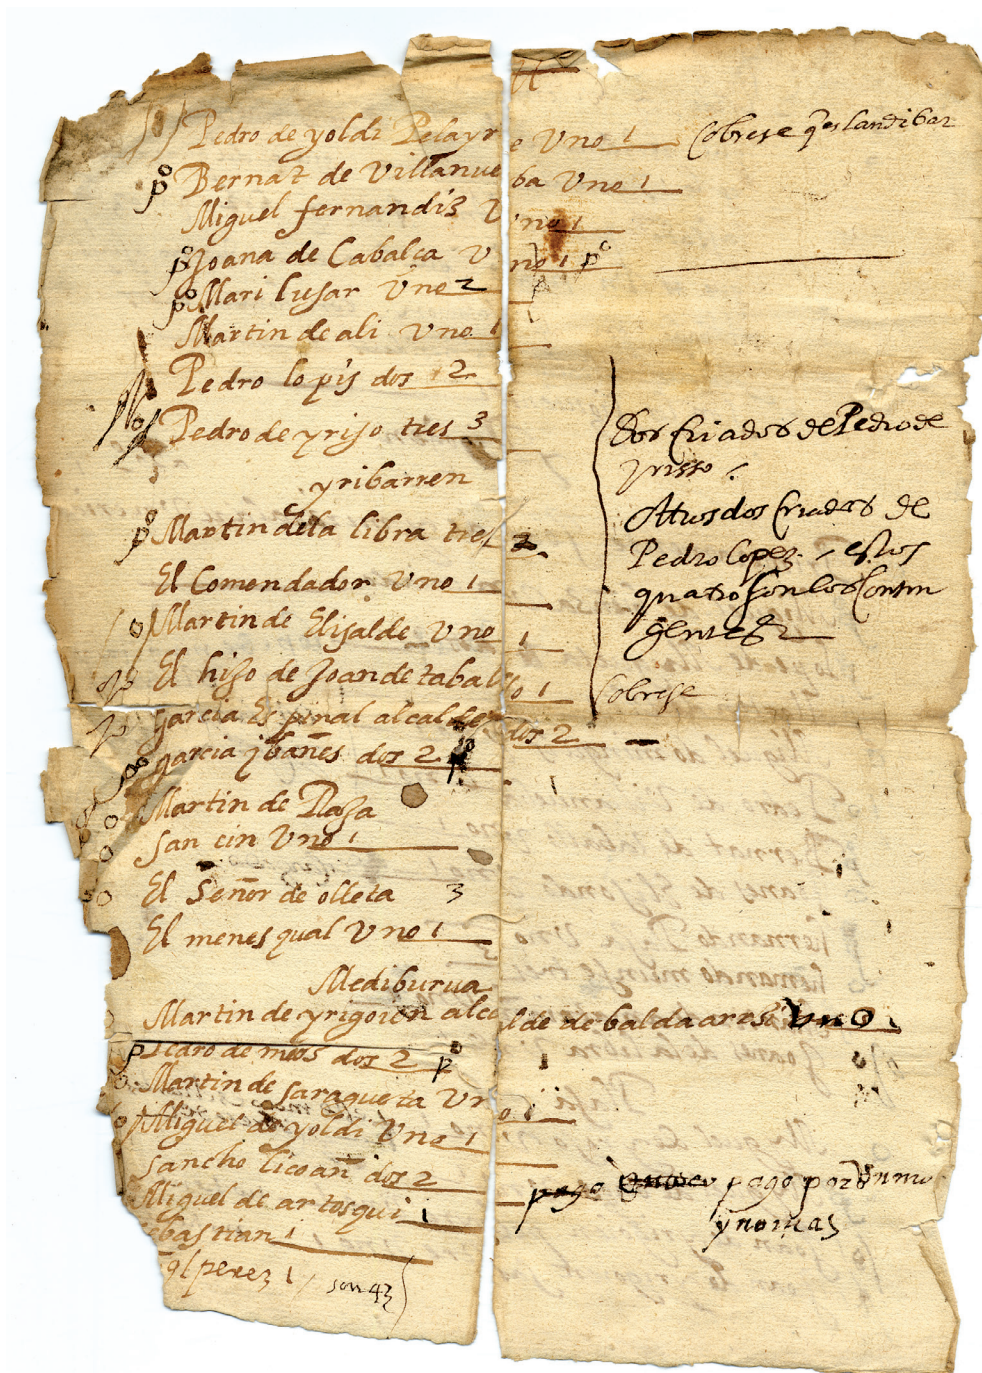 Pedro de yoldi Pelayre Uno 1 Cobrese q es landibar
po Bernat de Villanueba Uno 1
Miguel fernandis Uno 1
po Joana de Cabalça Uno 1 po
po Mari lusar Uno 2
Martin de ali Uno 1
Pedro lopis dos 2
Pedro de yriso tres 3
yribarren
po Martin de la libra tres 2
El Comendador Uno 1
Martin de Elisalde Uno 1
El hijo de Joan de tabalso 1 Cobrese
garcia Espinal alcalde dos 2
garcia ybañes dos 2
Martin de Plasa
san cin Uno 1
El Señor de olleta 3
El menesqual Uno 1
Mediburua
Martin de yrigoien alcalde de baldaarasi Uno
Pedro de meos dos 2 po
Martin de saragueta Uno 1
Miguel de yoldi Uno 1
Sancho licoañ dos 2
Miguel de artosqui 1
sebastian 1
perez 1 son 43
Dos Criados de Pedro de
yrisso
Ottros dos Criados de
Pedro Lopez estos
quatro son los Contin
gentes
pago pago por Unno
y no mas